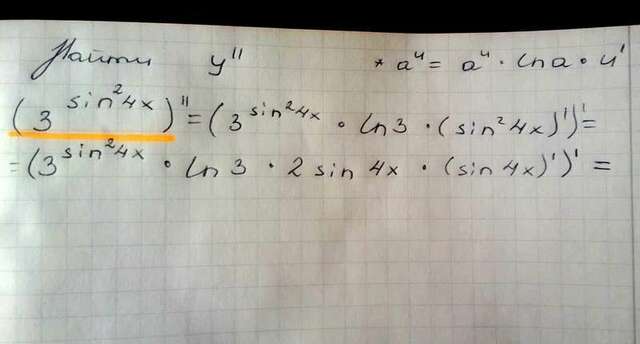 Найти y'' * a^u = a^u · ln a · u'
(3^{sin²4x})'' = (3^{sin²4x} · ln3 · (sin²4x)')' =
= (3^{sin²4x} · ln3 · 2 sin 4x · (sin 4x)')' =